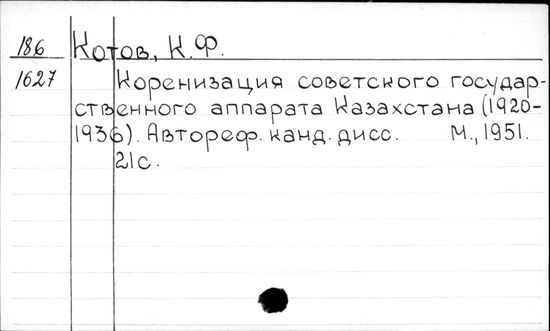 186 Котов, К.Ф.
1627 Коренизация советского государ-
ственного аппарата Казахстана (1920-
1936). Автореф. канд. дисс. М., 1951.
21с.